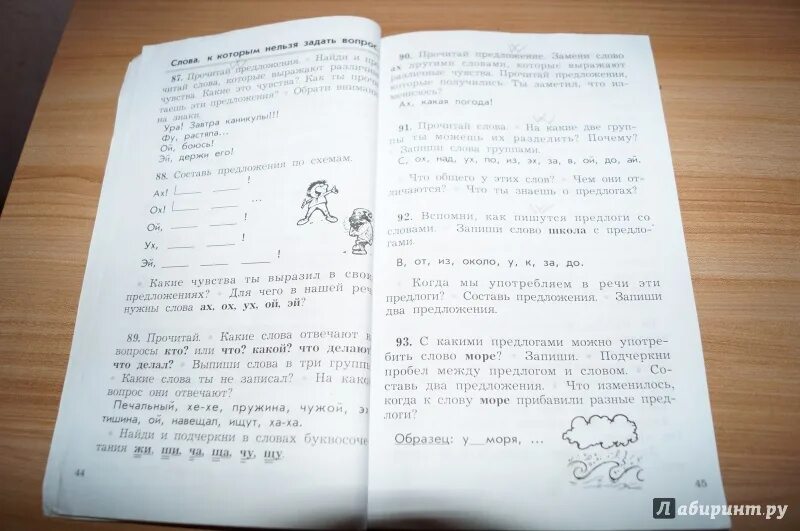 Слова, к которым нельзя задать вопрос
87. Прочитай предложения. ◦ Найди и про-
читай слова, которые выражают различные
чувства. Какие это чувства? Как ты
таешь эти предложения? ◦ Обрати внимание
на знаки.
Ура! Завтра каникулы!!!
Фу, растяпа...
Ой, боюсь!
Эй, держи его!
88. Составь предложения по схемам.
Ах! !
Ох! ...
Ой, !
Ух, !
Эй, !
◦ Какие чувства ты выразил в
предложениях? ◦ Для чего в нашей
нужны слова ах, ох, ух, ой, эй?
89. Прочитай. ◦ Какие слова отвечают
вопросы кто? или что? какой? что делают
что делал? ◦ Выпиши слова в три
◦ Какие слова ты не записал? ◦ На
вопрос они отвечают?
Печальный, хе-хе, пружина, чужой,
тишина, ой, навещал, ищут, ха-ха.
◦ Найди и подчеркни в словах буквосоче-
тания жи, ши, ча, ща, чу, щу.
44
90. Прочитай предложение. Замени слово
ах другими словами, которые выражают
различные чувства. Прочитай предложения,
которые получились. Ты заметил, что из-
менилось?
Ах, какая погода!
91. Прочитай слова. ◦ На какие две груп-
пы ты можешь их разделить? Почему?
◦ Запиши слова группами.
С, ох, над, ух, по, из, эх, за, в, ой, до, ай.
◦ Что общего у этих слов? ◦ Чем они от-
личаются? ◦ Что ты знаешь о предлогах?
92. Вспомни, как пишутся предлоги со
словами. ◦ Запиши слово школа с предло-
гами.
В, от, из, около, у, к, за, до.
◦ Когда мы употребляем в речи эти
предлоги? ◦ Составь предложения. ◦ Запиши
два предложения.
93. С какими предлогами можно употре-
бить слово море? ◦ Запиши. ◦ Подчеркни
пробел между предлогом и словом. ◦ Со-
ставь два предложения. ◦ Что изменилось,
когда к слову море прибавили разные пред-
логи?
Образец: у__моря, ...
45
Лабиринт.ру